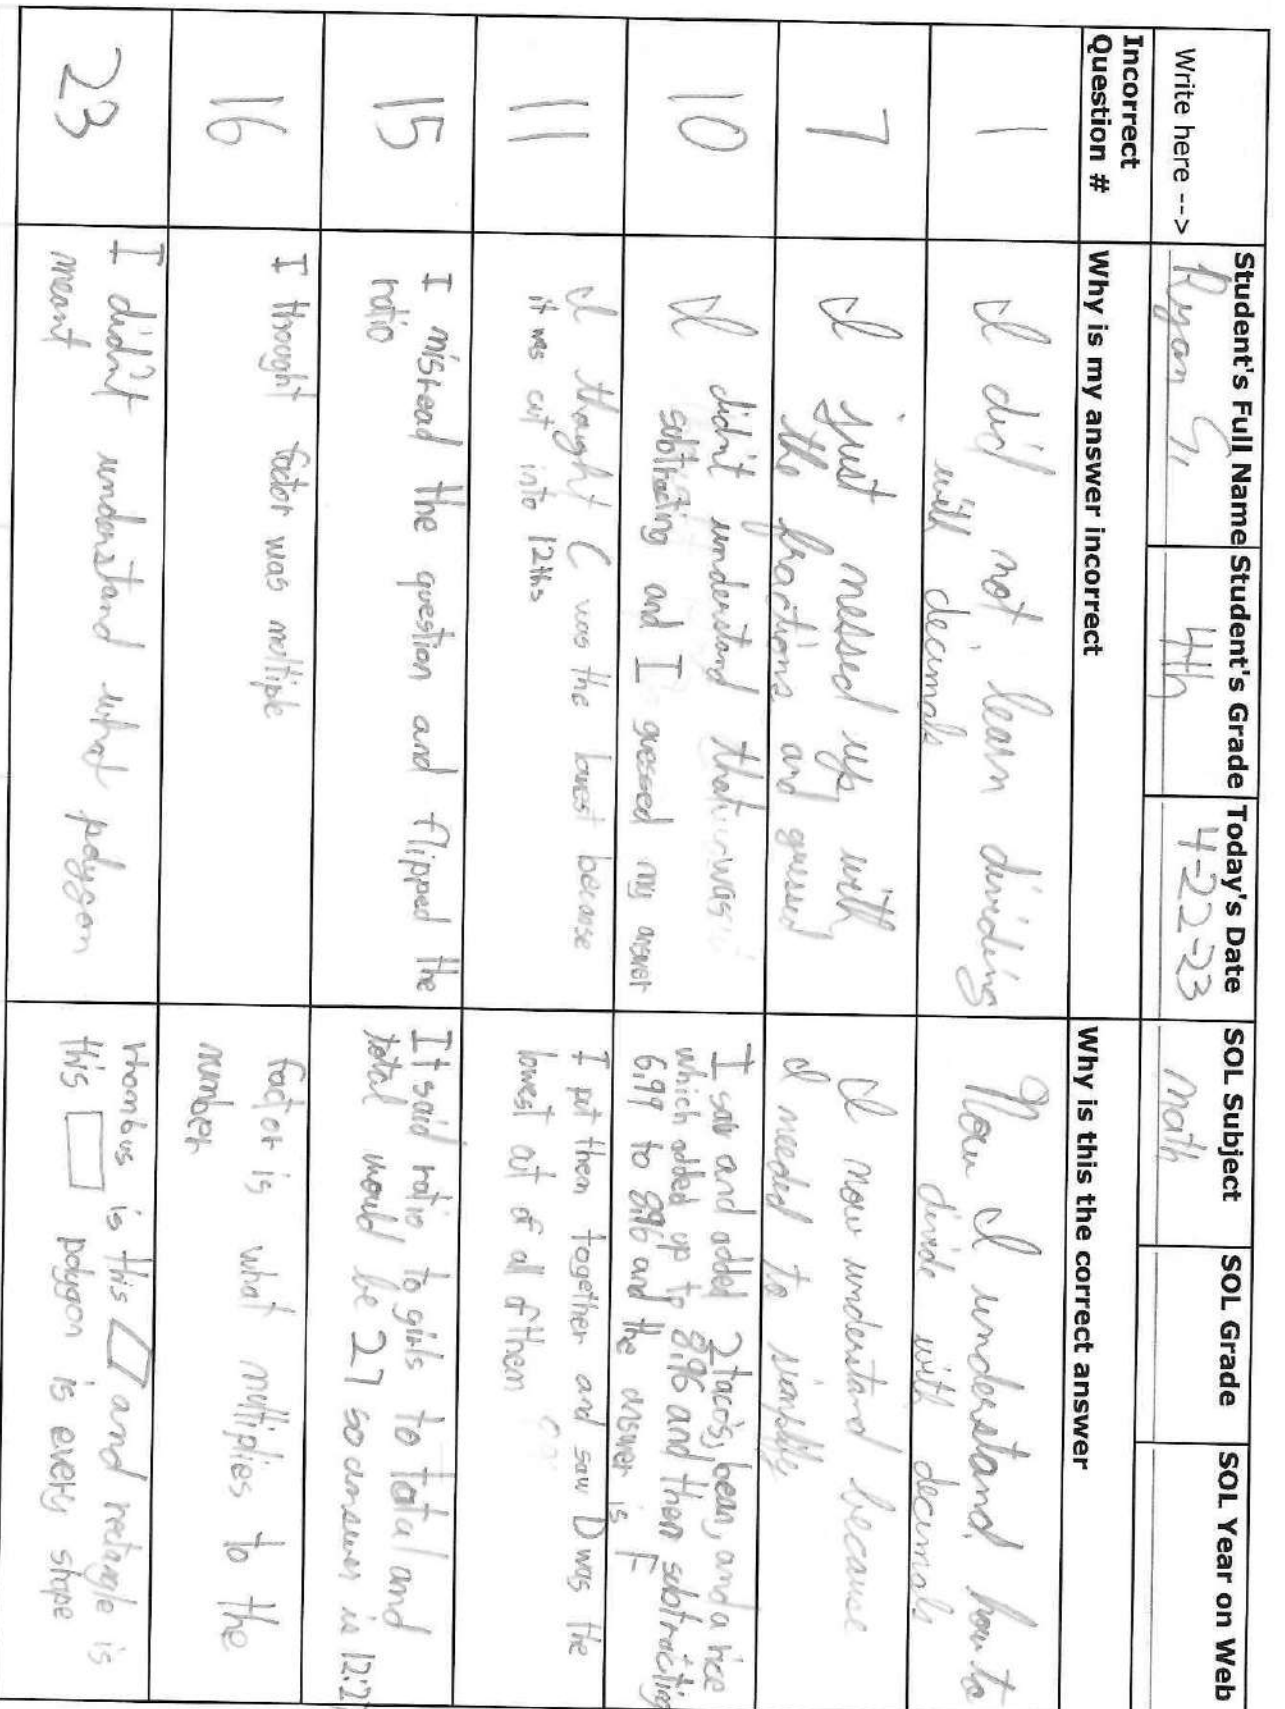 Student's Full Name Student's Grade Today's Date SOL Subject SOL Grade SOL Year on Web
Write here --> Ryan G. 4th 4-22-23 math
Incorrect
Question #
Why is my answer incorrect
Why is this the correct answer
1
I did not learn dividing
with decimals
Now I understand how to
divide with decimals
7
I just messed up with
the fractions and guessed
I now understand because
I needed to simplify
10
I didn't understand that was
subtracting and I guessed my answer
I saw and added 2 tacos, bean, and a rice
which added up to 8.96 and then subtracting
6.99 to 8.96 and the answer is F
11
I thought C was the lowest because
it was cut into 12ths
I put them together and saw D was the
lowest out of all of them
15
I misread the question and flipped the
ratio
It said ratio to girls to total and
total would be 27 so answer is 12:2
16
I thought factor was multiple
factor is what multiplies to the
number
23
I didn't understand what polygon
meant
rhombus is this and rectangle is
this polygon is every shape